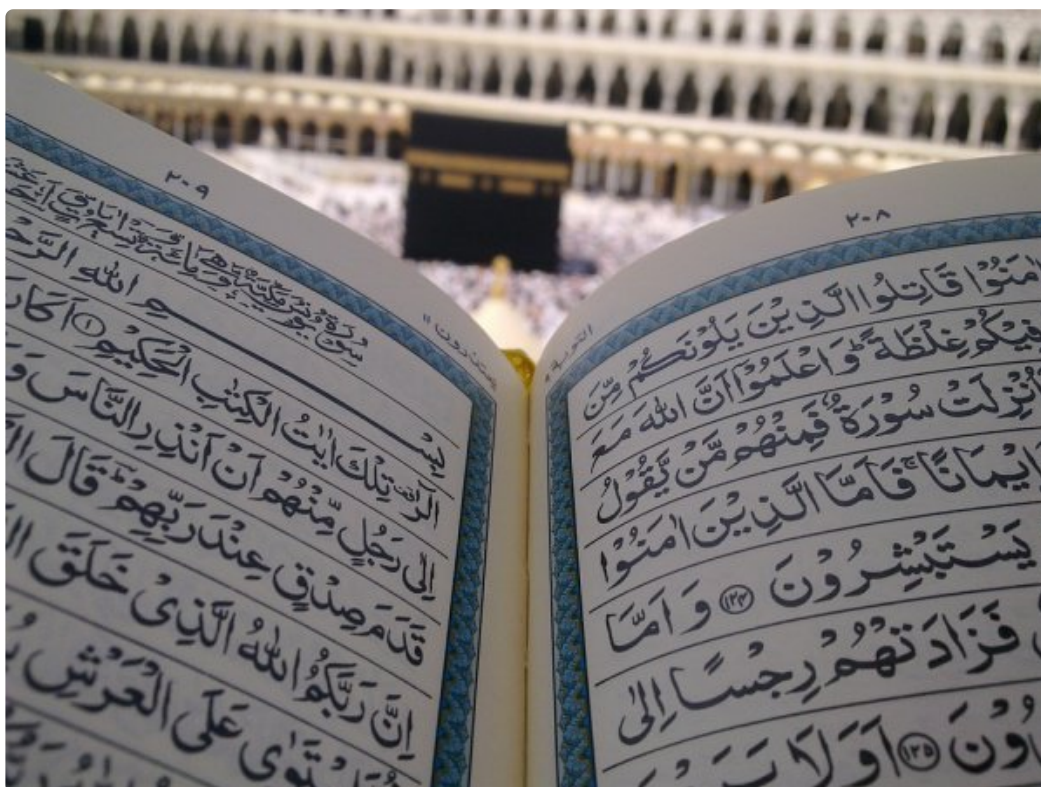 ٢٠٨
التوبة ٩
اٰمَنُوْا قَاتِلُوا الَّذِيْنَ يَلُوْنَكُمْ مِّنَ
فِيْكُمْ غِلْظَةً ؕ وَاعْلَمُوْۤا اَنَّ اللّٰهَ مَعَ
اُنْزِلَتْ سُوْرَةٌ فَمِنْهُمْ مَّنْ يَّقُوْلُ
اِيْمَانًا ۚ فَاَمَّا الَّذِيْنَ اٰمَنُوْا
يَسْتَبْشِرُوْنَ ﴿١٢٤﴾ وَاَمَّا
فَزَادَتْهُمْ رِجْسًا اِلٰى
﴿١٢٥﴾ اَوَلَا
٢٠٩
يعتذرون ١١
سُوْرَةُ يُوْنُسَ مَكِّيَّةٌ
بِسْمِ اللّٰهِ
الٓرٰ تِلْكَ اٰيٰتُ الْكِتٰبِ الْحَكِيْمِ ﴿١﴾ اَكَانَ
اِلٰى رَجُلٍ مِّنْهُمْ اَنْ اَنْذِرِ النَّاسَ وَ
قَدَمَ صِدْقٍ عِنْدَ رَبِّهِمْ ؕ قَالَ
اِنَّ رَبَّكُمُ اللّٰهُ الَّذِيْ خَلَقَ
اسْتَوٰى عَلَى الْعَرْشِ